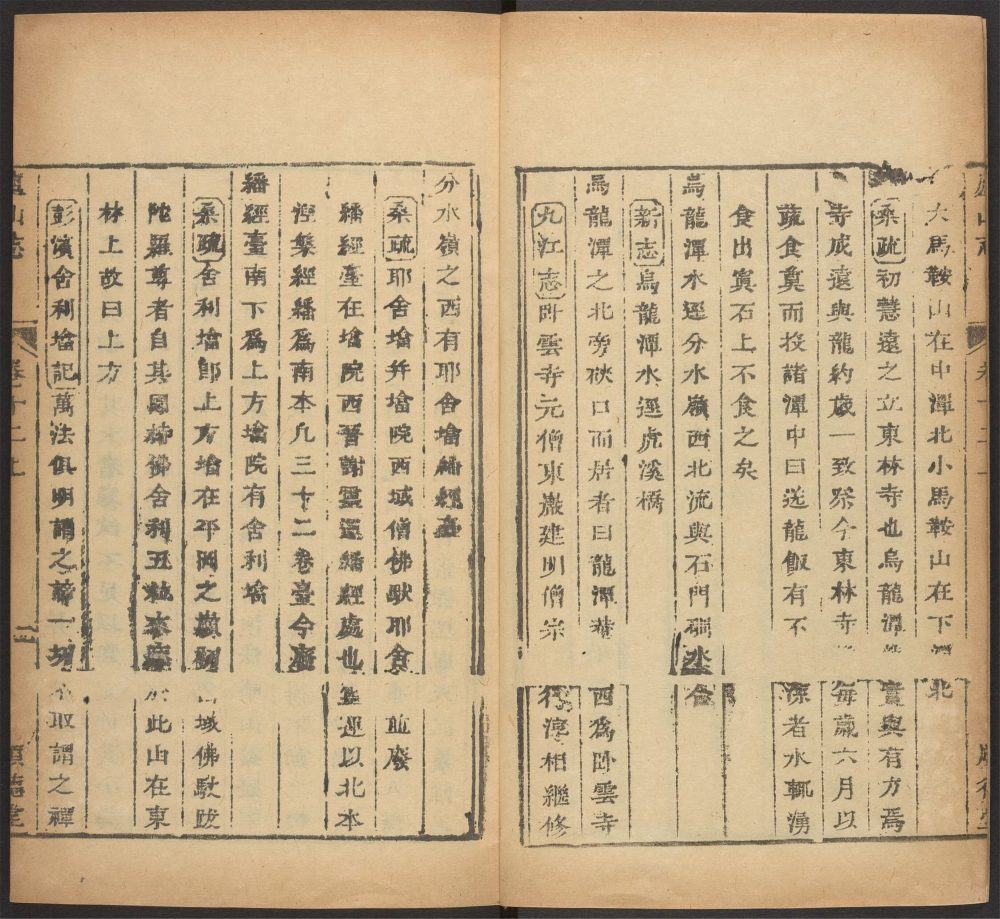 大馬鞍山在中潭北小馬鞍山在下潭北
桑疏初慧遠之立東林寺也烏龍潭實與有方焉
寺成遠與龍約歲一致祭今東林寺每歲六月以
蔬食奠而投諸潭中曰送龍飯有不潔者水輒湧
食出寘石上不食之矣
烏龍潭水逕分水嶺西北流與石門磵水合
新志烏龍潭水逕虎溪橋
烏龍潭之北旁袂口而居者曰龍潭菴西爲臥雲寺
九江志臥雲寺元僧東巖建明僧宗行淳相繼修
分水嶺之西有耶舍墖繙經臺
桑疏耶舍墖幷墖院西域僧佛馱耶舍建竝廢
繙經臺在墖院西晉謝靈運繙經處也靈運以北本
湼槃經繙爲南本凡三十二卷臺今廢
繙經臺南下爲上方墖院有舍利墖
桑疏舍利墖郎上方墖在平岡之巔西域佛馱跋
陀羅尊者自其國持佛舍利五粒來瘞於此山在東
林上故曰上方
彭濱舍利墖記萬法俱明謂之諦一切不取謂之禪
廬山志
卷十二上
順德堂